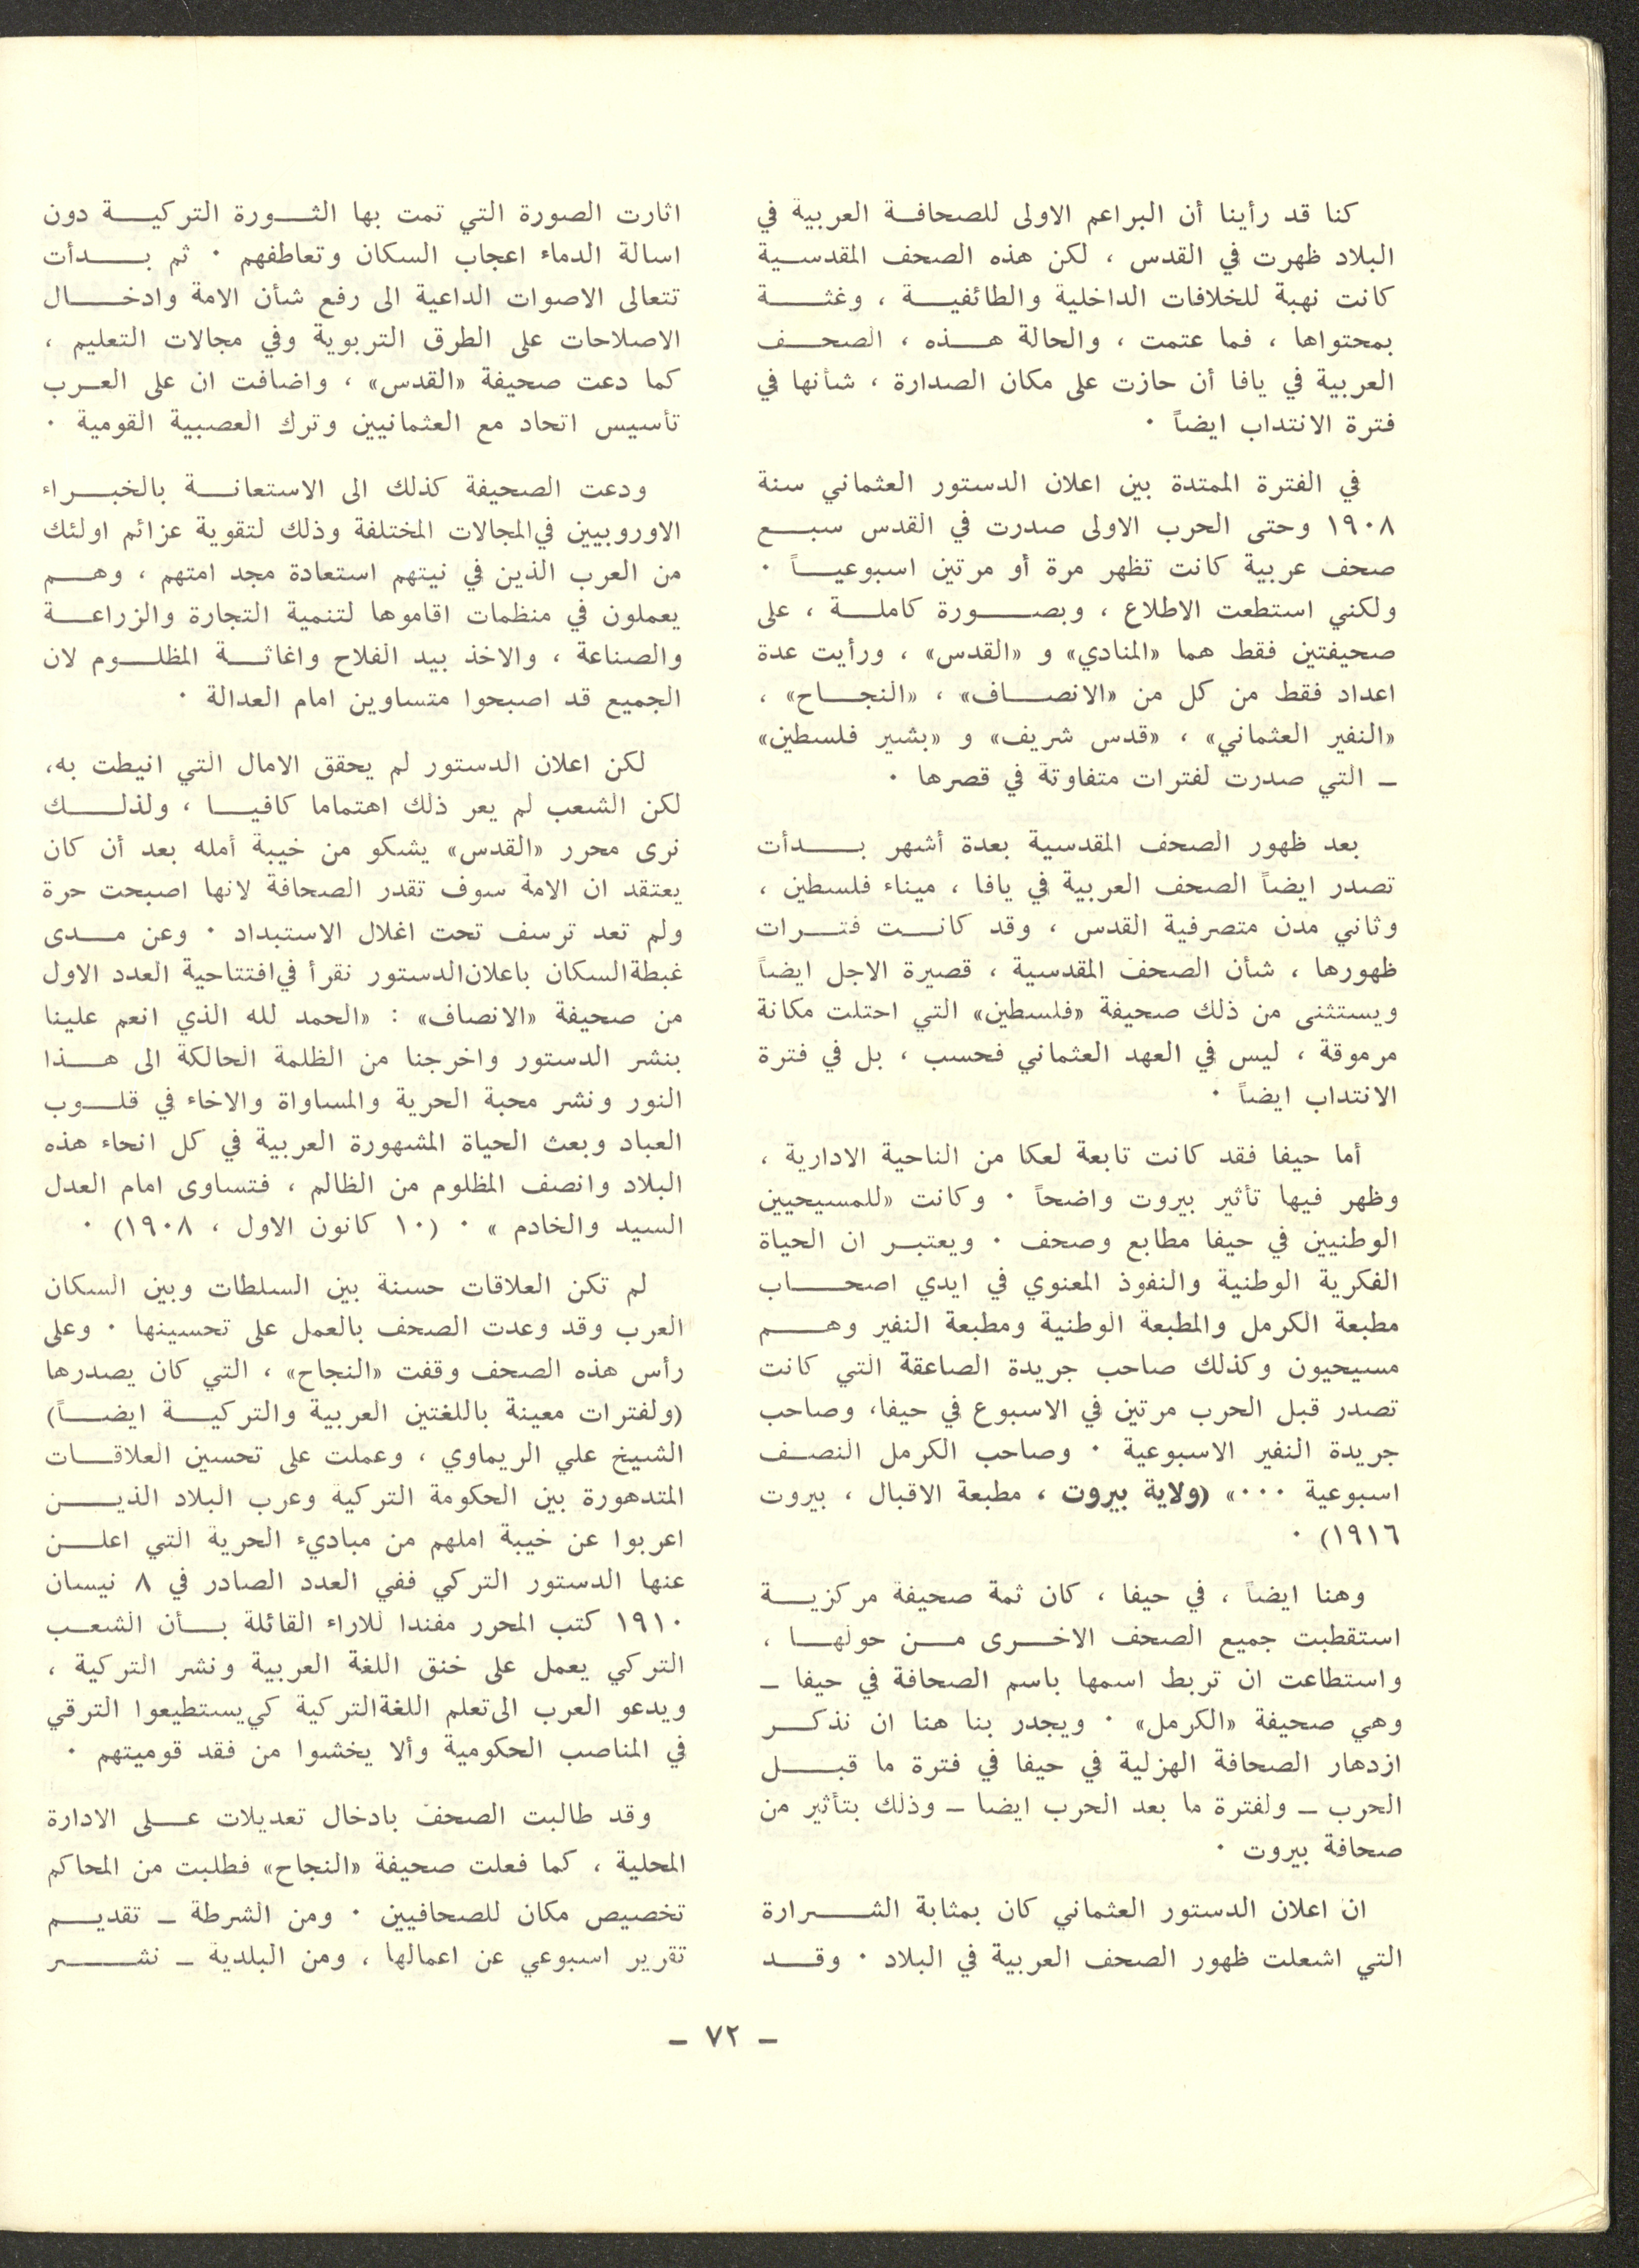 كنا قد رأينا أن البراعم الاولى للصحافة العربية في
البلاد ظهرت في القدس ، لكن هذه الصحف المقدسية
كانت نهبة للخلافات الداخلية والطائفية ، وغثة
بمحتواها ، فما عتمت ، والحالة هذه ، الصحف
العربية في يافا أن حازت على مكان الصدارة ، شأنها في
فترة الانتداب ايضاً ٠
في الفترة الممتدة بين اعلان الدستور العثماني سنة
١٩٠٨ وحتى الحرب الاولى صدرت في القدس سبع
صحف عربية كانت تظهر مرة أو مرتين اسبوعياً ٠
ولكني استطعت الاطلاع ، وبصورة كاملة ، على
صحيفتين فقط هما «المنادي» و «القدس» ، ورأيت عدة
اعداد فقط من كل من «الانصاف» ، «النجاح» ،
«النفير العثماني» ، «قدس شريف» و «بشير فلسطين»
ـ التي صدرت لفترات متفاوتة في قصرها ٠
بعد ظهور الصحف المقدسية بعدة أشهر بدأت
تصدر ايضاً الصحف العربية في يافا ، ميناء فلسطين ،
وثاني مدن متصرفية القدس ، وقد كانت فترات
ظهورها ، شأن الصحف المقدسية ، قصيرة الاجل ايضاً
ويستثنى من ذلك صحيفة «فلسطين» التي احتلت مكانة
مرموقة ، ليس في العهد العثماني فحسب ، بل في فترة
الانتداب ايضاً ٠
أما حيفا فقد كانت تابعة لعكا من الناحية الادارية ،
وظهر فيها تأثير بيروت واضحاً ٠ وكانت «للمسيحيين
الوطنيين في حيفا مطابع وصحف ٠ ويعتبر ان الحياة
الفكرية الوطنية والنفوذ المعنوي في ايدي اصحاب
مطبعة الكرمل والمطبعة الوطنية ومطبعة النفير وهم
مسيحيون وكذلك صاحب جريدة الصاعقة التي كانت
تصدر قبل الحرب مرتين في الاسبوع في حيفا، وصاحب
جريدة النفير الاسبوعية ٠ وصاحب الكرمل النصف
اسبوعية ٠٠٠» (ولاية بيروت ، مطبعة الاقبال ، بيروت
١٩١٦) ٠
وهنا ايضاً ، في حيفا ، كان ثمة صحيفة مركزية
استقطبت جميع الصحف الاخرى من حولها ،
واستطاعت ان تربط اسمها باسم الصحافة في حيفا ـ
وهي صحيفة «الكرمل» ٠ ويجدر بنا هنا ان نذكر
ازدهار الصحافة الهزلية في حيفا في فترة ما قبل
الحرب ـ ولفترة ما بعد الحرب ايضا ـ وذلك بتأثير من
صحافة بيروت ٠
ان اعلان الدستور العثماني كان بمثابة الشرارة
التي اشعلت ظهور الصحف العربية في البلاد ٠ وقد
اثارت الصورة التي تمت بها الثورة التركية دون
اسالة الدماء اعجاب السكان وتعاطفهم ٠ ثم بدأت
تتعالى الاصوات الداعية الى رفع شأن الامة وادخال
الاصلاحات على الطرق التربوية وفي مجالات التعليم ،
كما دعت صحيفة «القدس» ، واضافت ان على العرب
تأسيس اتحاد مع العثمانيين وترك العصبية القومية ٠
ودعت الصحيفة كذلك الى الاستعانة بالخبراء
الاوروبيين في المجالات المختلفة وذلك لتقوية عزائم اولئك
من العرب الذين في نيتهم استعادة مجد امتهم ، وهم
يعملون في منظمات اقاموها لتنمية التجارة والزراعة
والصناعة ، والاخذ بيد الفلاح واغاثة المظلوم لان
الجميع قد اصبحوا متساوين امام العدالة ٠
لكن اعلان الدستور لم يحقق الامال التي انيطت به،
لكن الشعب لم يعر ذلك اهتماما كافيا ، ولذلك
نرى محرر «القدس» يشكو من خيبة أمله بعد أن كان
يعتقد ان الامة سوف تقدر الصحافة لانها اصبحت حرة
ولم تعد ترسف تحت اغلال الاستبداد ٠ وعن مدى
غبطة السكان باعلان الدستور نقرأ في افتتاحية العدد الاول
من صحيفة «الانصاف» : «الحمد لله الذي انعم علينا
بنشر الدستور واخرجنا من الظلمة الحالكة الى هذا
النور ونشر محبة الحرية والمساواة والاخاء في قلوب
العباد وبعث الحياة المشهورة العربية في كل انحاء هذه
البلاد وانصف المظلوم من الظالم ، فتساوى امام العدل
السيد والخادم » ٠ (١٠ كانون الاول ، ١٩٠٨) ٠
لم تكن العلاقات حسنة بين السلطات وبين السكان
العرب وقد وعدت الصحف بالعمل على تحسينها ٠ وعلى
رأس هذه الصحف وقفت «النجاح» ، التي كان يصدرها
(ولفترات معينة باللغتين العربية والتركية ايضاً)
الشيخ علي الريماوي ، وعملت على تحسين العلاقات
المتدهورة بين الحكومة التركية وعرب البلاد الذين
اعربوا عن خيبة املهم من مباديء الحرية التي اعلن
عنها الدستور التركي ففي العدد الصادر في ٨ نيسان
١٩١٠ كتب المحرر مفندا للاراء القائلة بأن الشعب
التركي يعمل على خنق اللغة العربية ونشر التركية ،
ويدعو العرب الى تعلم اللغة التركية كي يستطيعوا الترقي
في المناصب الحكومية وألا يخشوا من فقد قوميتهم ٠
وقد طالبت الصحف بادخال تعديلات على الادارة
المحلية ، كما فعلت صحيفة «النجاح» فطلبت من المحاكم
تخصيص مكان للصحافيين ٠ ومن الشرطة ـ تقديم
تقرير اسبوعي عن اعمالها ، ومن البلدية ـ نشر
ـ ٧٢ ـ